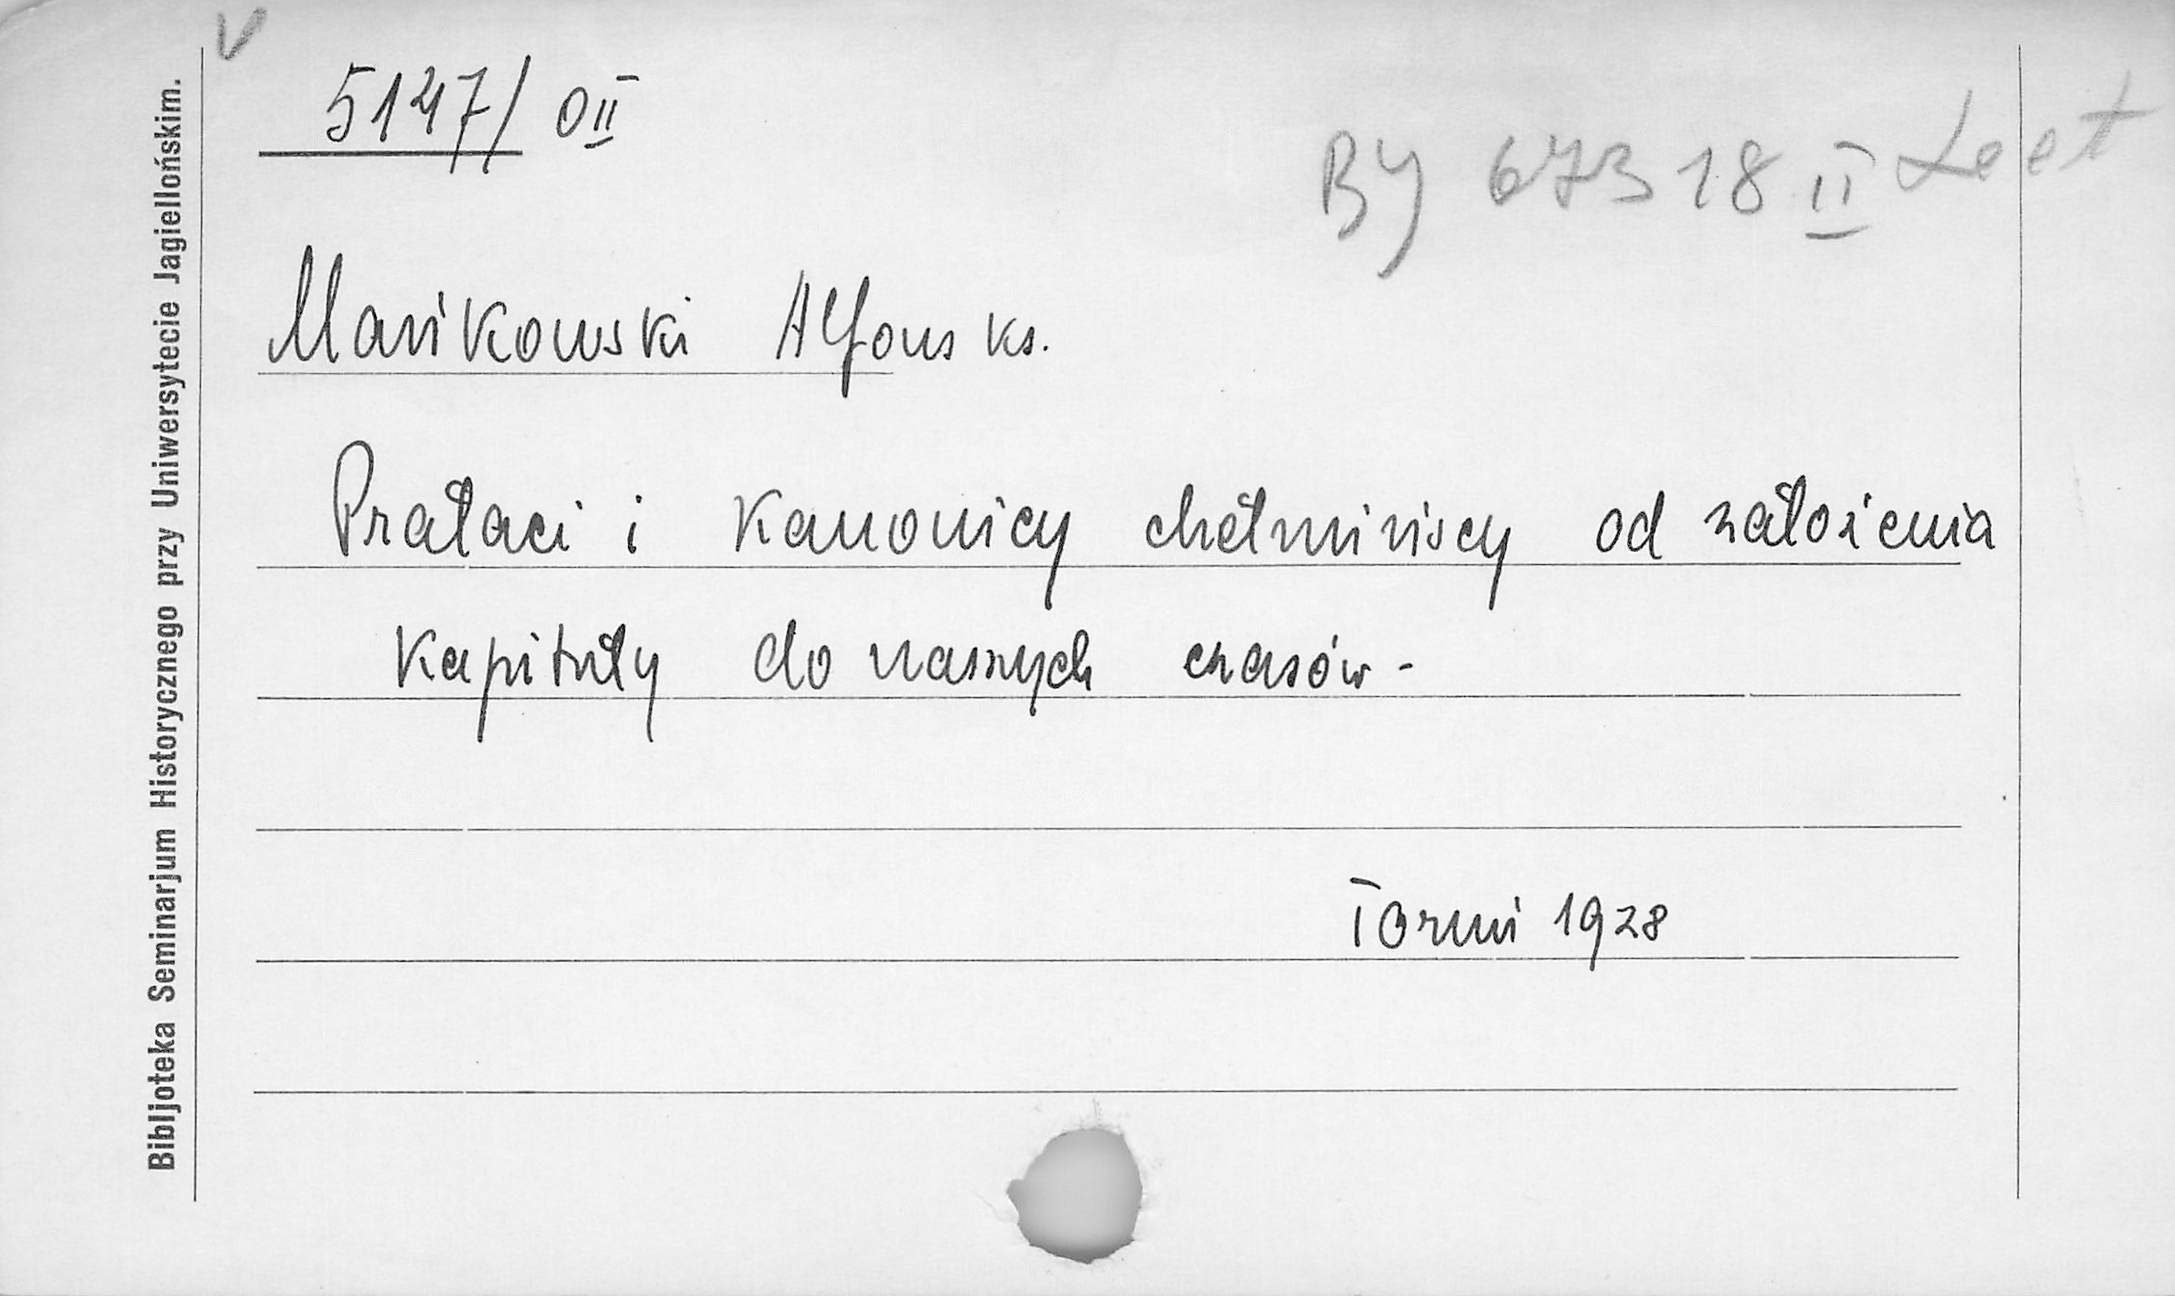 V
5147/ O II
BJ 67318 II Lect
Mańkowski Alfons ks.
Prałaci i kanonicy chełmińscy od założenia
kapituły do naszych czasów -
Toruń 1928
Bibljoteka Seminarjum Historycznego przy Uniwersytecie Jagiellońskim.